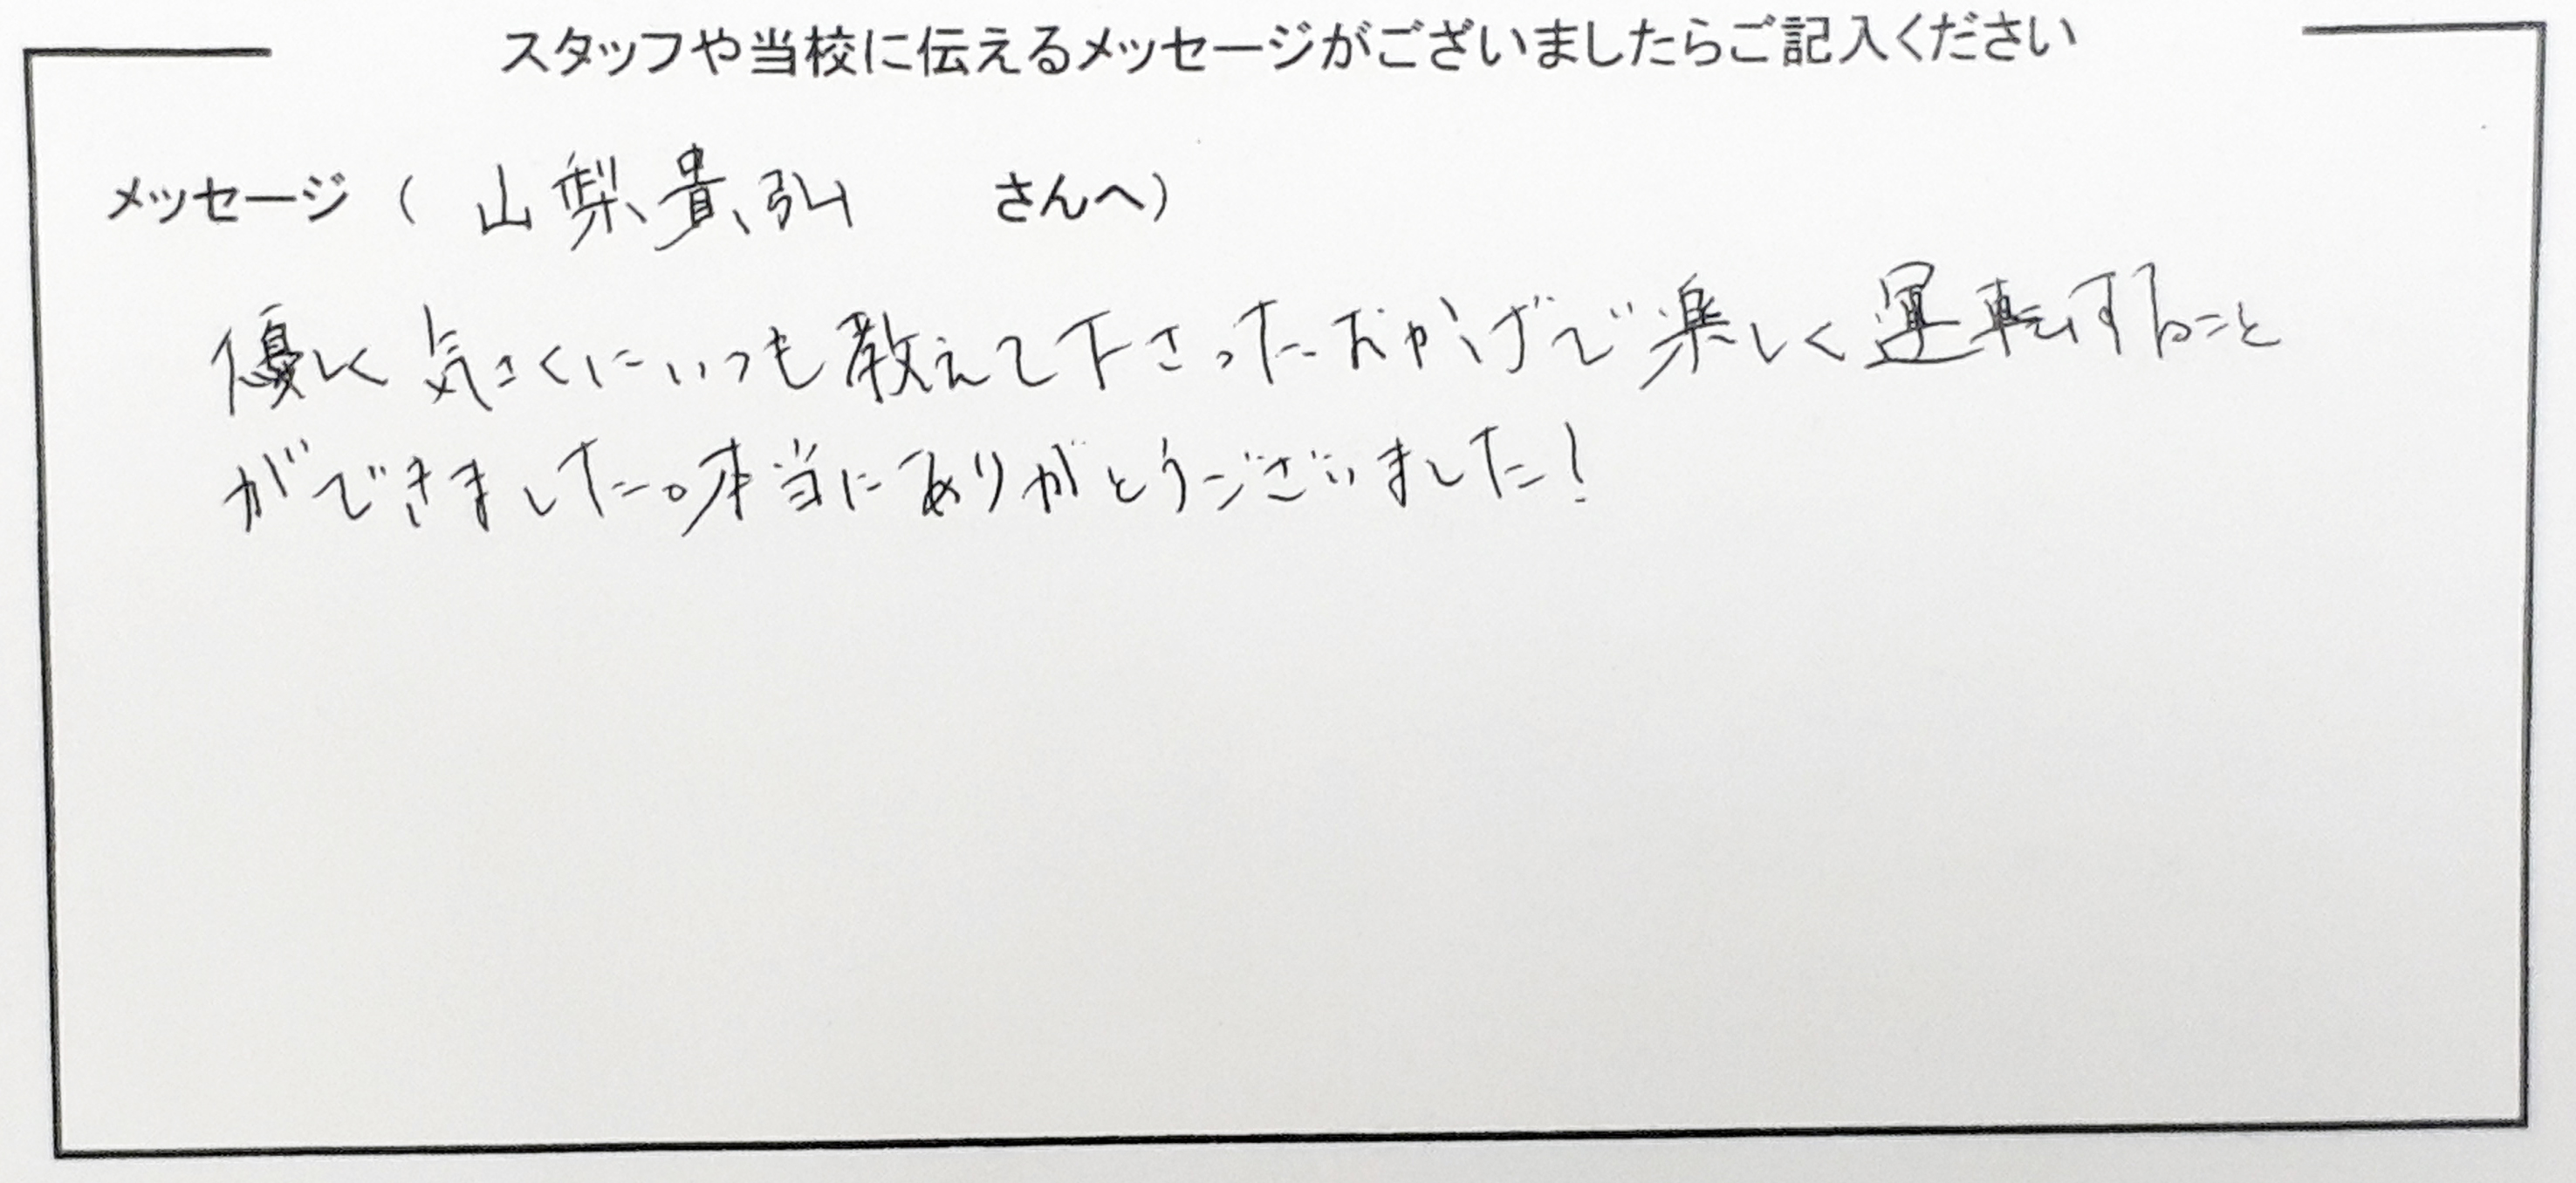 スタッフや当校に伝えるメッセージがございましたらご記入ください
メッセージ（ 山梨貴弘 さんへ）
優しく気さくにいつも教えて下さったおかげで楽しく運転すること
ができました。本当にありがとうございました！